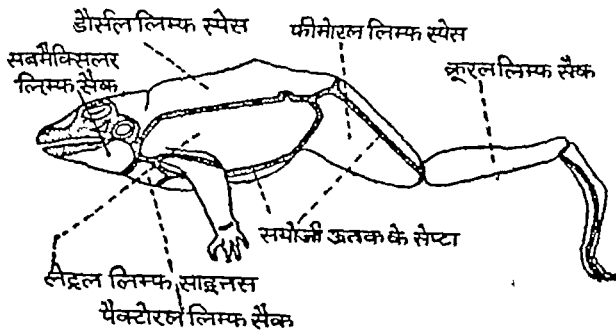 डौर्सल लिम्फ स्पेस
फीमोरल लिम्फ स्पेस
सबमैक्सिलर
लिम्फ सैक
क्रूरल लिम्फ सैक
सयोजी ऊतक के सेप्टा
लेट्रल लिम्फ साइनस
पैक्टोरल लिम्फ सैक